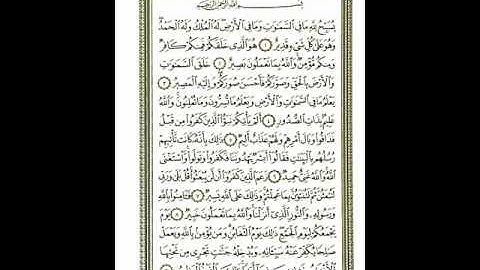 بِسْمِ ٱللَّهِ ٱلرَّحْمَٰنِ ٱلرَّحِيمِ
يُسَبِّحُ لِلَّهِ مَا فِي ٱلسَّمَٰوَٰتِ وَمَا فِي ٱلْأَرْضِ لَهُ ٱلْمُلْكُ وَلَهُ ٱلْحَمْدُ
وَهُوَ عَلَىٰ كُلِّ شَيْءٍ قَدِيرٌ ١ هُوَ ٱلَّذِي خَلَقَكُمْ فَمِنكُمْ كَافِرٌ
وَمِنكُم مُّؤْمِنٌ وَٱللَّهُ بِمَا تَعْمَلُونَ بَصِيرٌ ٢ خَلَقَ ٱلسَّمَٰوَٰتِ
وَٱلْأَرْضَ بِٱلْحَقِّ وَصَوَّرَكُمْ فَأَحْسَنَ صُوَرَكُمْ وَإِلَيْهِ ٱلْمَصِيرُ ٣
يَعْلَمُ مَا فِي ٱلسَّمَٰوَٰتِ وَٱلْأَرْضِ وَيَعْلَمُ مَا تُسِرُّونَ وَمَا تُعْلِنُونَ وَٱللَّهُ
عَلِيمٌۢ بِذَاتِ ٱلصُّدُورِ ٤ أَلَمْ يَأْتِكُمْ نَبَؤُا۟ ٱلَّذِينَ كَفَرُوا۟ مِن قَبْلُ
فَذَاقُوا۟ وَبَالَ أَمْرِهِمْ وَلَهُمْ عَذَابٌ أَلِيمٌ ٥ ذَٰلِكَ بِأَنَّهُۥ كَانَت تَّأْتِيهِمْ
رُسُلُهُم بِٱلْبَيِّنَٰتِ فَقَالُوٓا۟ أَبَشَرٌ يَهْدُونَنَا فَكَفَرُوا۟ وَتَوَلَّوا۟ وَّٱسْتَغْنَى
ٱللَّهُ وَٱللَّهُ غَنِيٌّ حَمِيدٌ ٦ زَعَمَ ٱلَّذِينَ كَفَرُوٓا۟ أَن لَّن يُبْعَثُوا۟ قُلْ بَلَىٰ وَرَبِّي
لَتُبْعَثُنَّ ثُمَّ لَتُنَبَّؤُنَّ بِمَا عَمِلْتُمْ وَذَٰلِكَ عَلَى ٱللَّهِ يَسِيرٌ ٧ فَـَٔامِنُوا۟ بِٱللَّهِ
وَرَسُولِهِۦ وَٱلنُّورِ ٱلَّذِيٓ أَنزَلْنَا وَٱللَّهُ بِمَا تَعْمَلُونَ خَبِيرٌ ٨ يَوْمَ
يَجْمَعُكُمْ لِيَوْمِ ٱلْجَمْعِ ذَٰلِكَ يَوْمُ ٱلتَّغَابُنِ وَمَن يُؤْمِنۢ بِٱللَّهِ وَيَعْمَلْ
صَٰلِحًا يُكَفِّرْ عَنْهُ سَيِّـَٔاتِهِۦ وَيُدْخِلْهُ جَنَّٰتٍ تَجْرِي مِن تَحْتِهَا